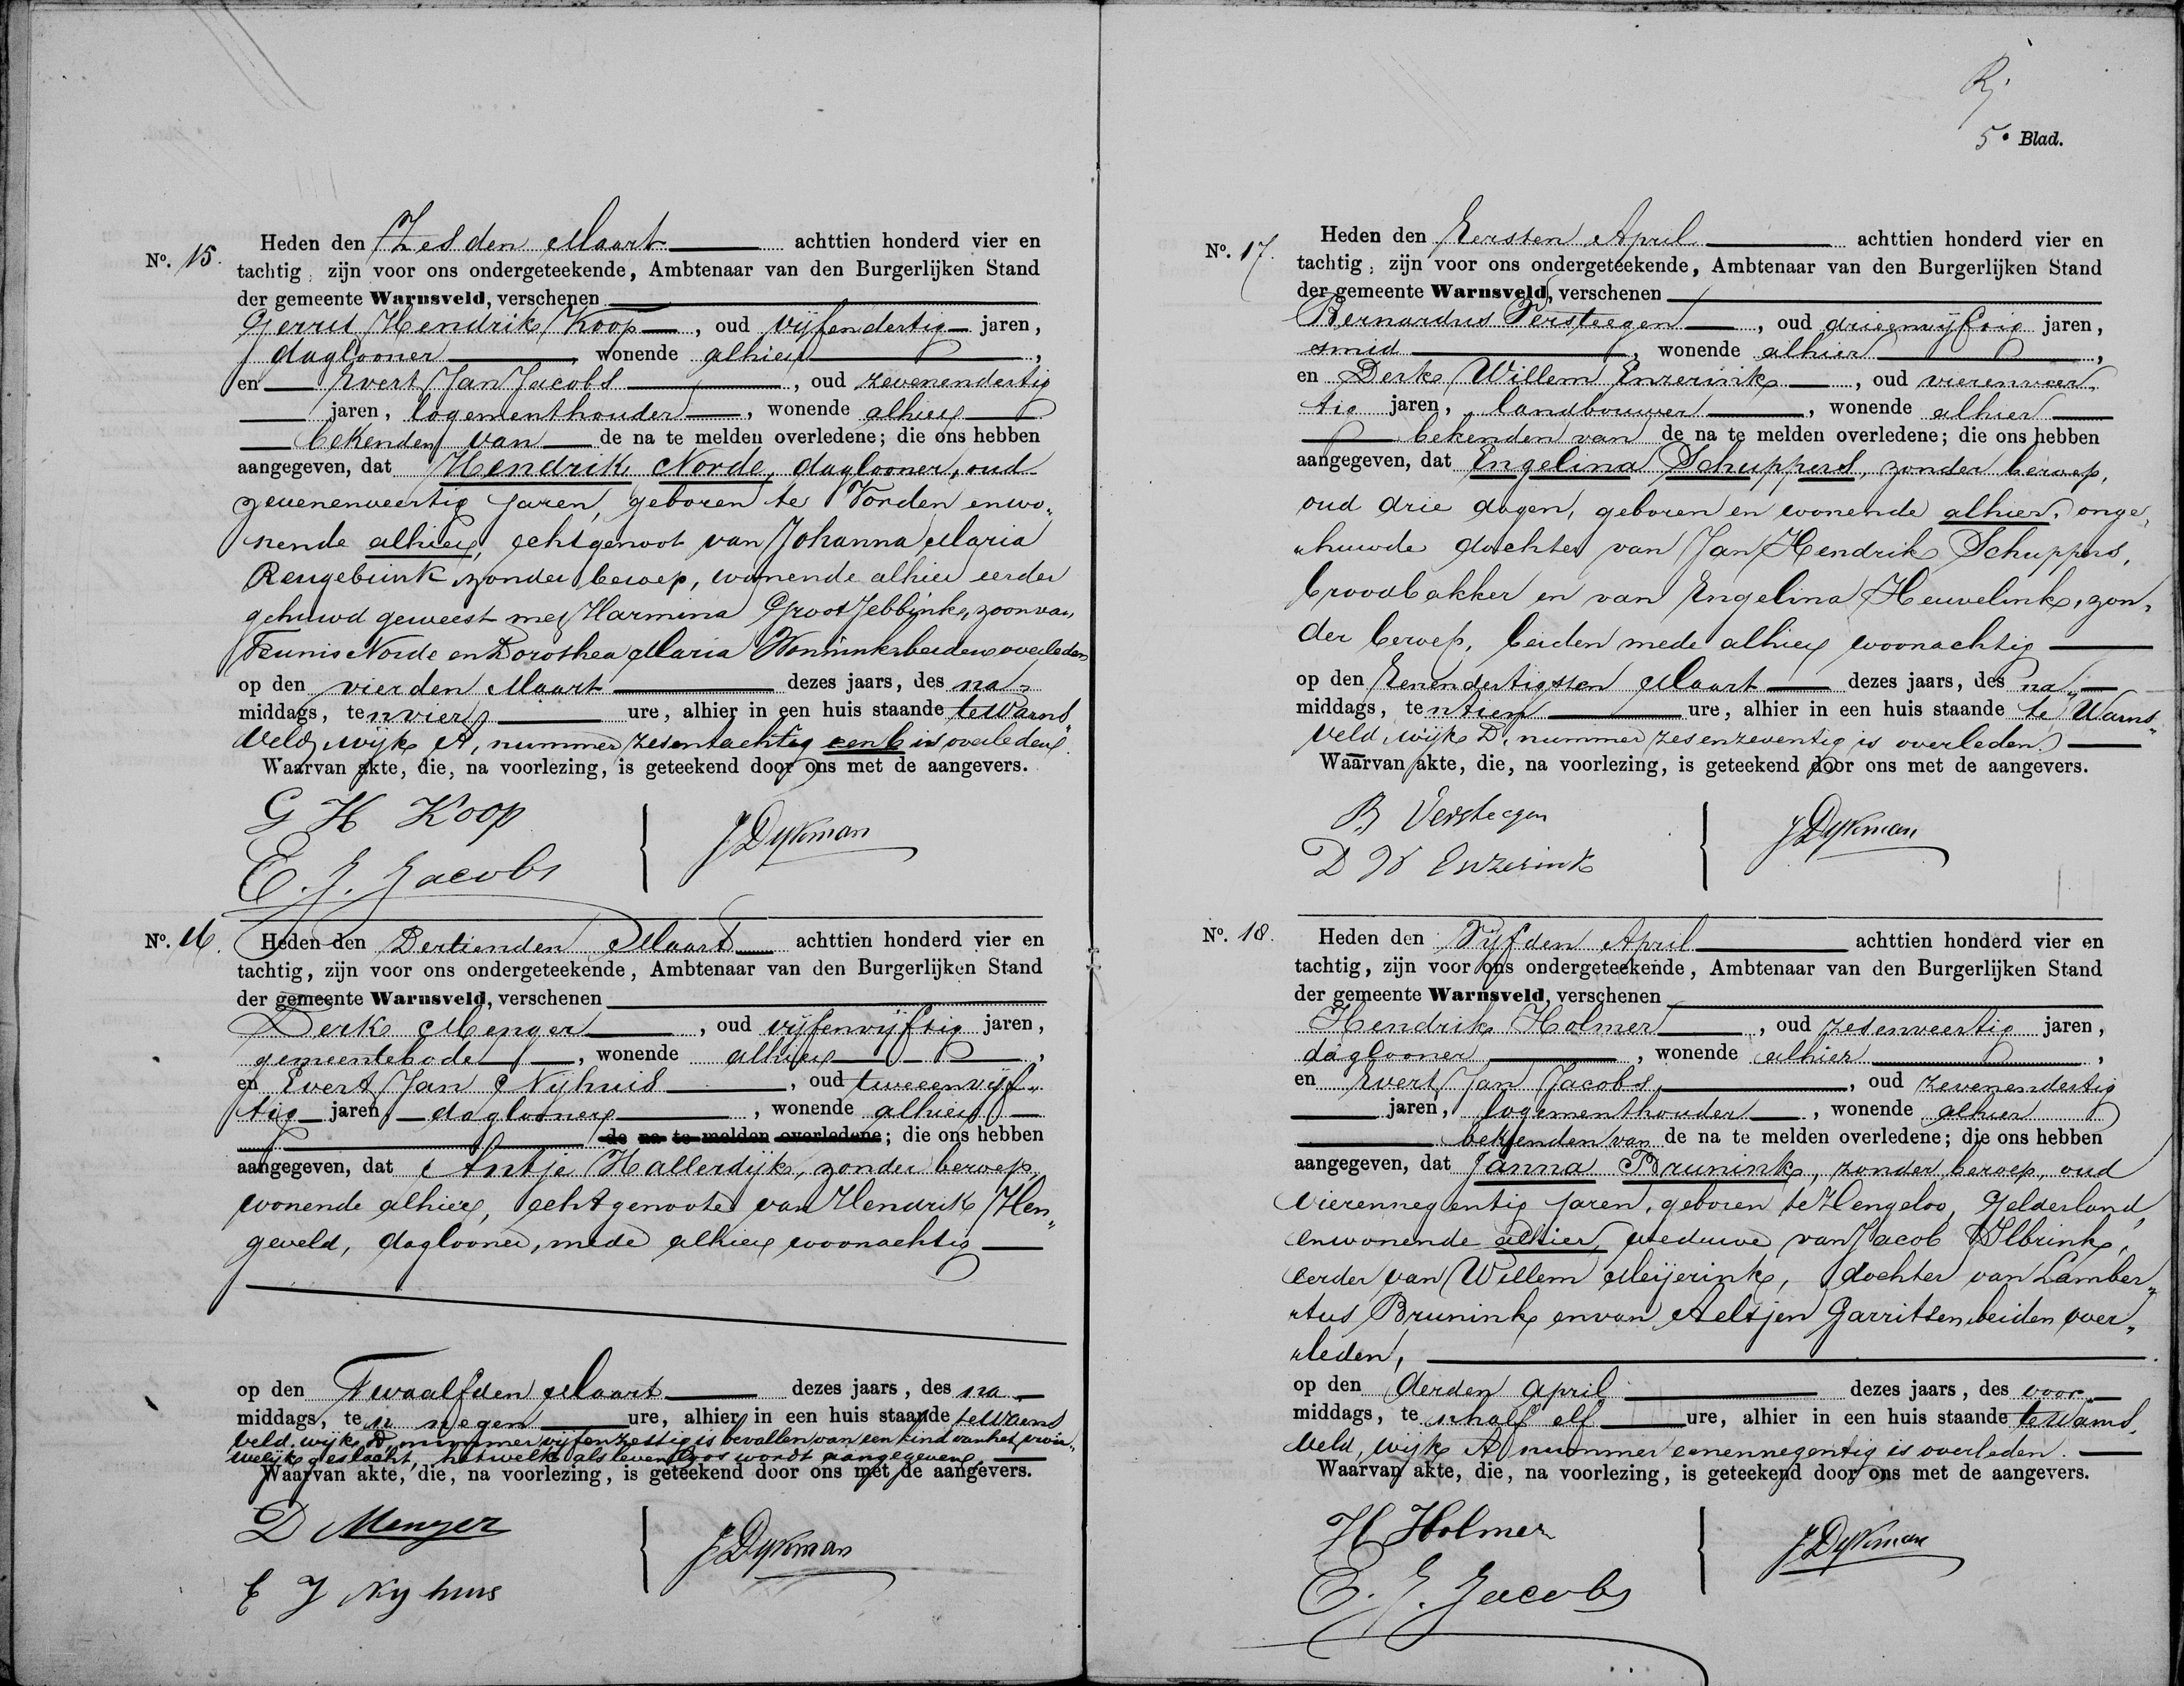 No. 15.
Heden den Zesden Maart achttien honderd vier en
tachtig, zijn voor ons ondergeteekende, Ambtenaar van den Burgerlijken Stand
der gemeente Warnsveld, verschenen
Gerrit Hendrik Koop, oud vijfendertig jaren,
daglooner, wonende alhier,
en Evert Jan Jacobs, oud zevenendertig
jaren, logementhouder, wonende alhier
bekenden van de na te melden overledene; die ons hebben
aangegeven, dat Hendrik Norde, daglooner, oud
zevenenveertig jaren, geboren te Vorden en wo„
nende alhier, echtgenoot van Johanna Maria
Reugebrink zonder beroep, wonende alhier eerder
gehuwd geweest met Harmina Groot Jebbink, zoon van
Teunis Norde en Dorothea Maria Wonnink beiden overleden
op den vierden Maart dezes jaars, des na„
middags, ten vier ure, alhier in een huis staande te Warns„
veld, wijk A, nummer zesentachtig een b is overleden.
Waarvan akte, die, na voorlezing, is geteekend door ons met de aangevers.
G H Koop
E. J. Jacobs
J Dykman
No. 16.
Heden den Dertienden Maart achttien honderd vier en
tachtig, zijn voor ons ondergeteekende, Ambtenaar van den Burgerlijken Stand
der gemeente Warnsveld, verschenen
Derk Menger, oud vijfenvijftig jaren,
gemeentebode, wonende alhier,
en Evert Jan Nijhuis, oud tweeenvijf„
tig jaren, daglooner, wonende alhier
de na te melden overledene; die ons hebben
aangegeven, dat Antje Hallerdijk, zonder beroep,
wonende alhier, echtgenoote van Hendrik Hen„
geveld, daglooner, mede alhier woonachtig
op den Twaalfden Maart dezes jaars, des na
middags, ten negen ure, alhier in een huis staande te Warns
veld, wijk D, nummer vijfenzestig is bevallen van een kind van het vrou„
welijk geslacht, hetwelk als levenloos wordt aangegeven.
Waarvan akte, die, na voorlezing, is geteekend door ons met de aangevers.
D Menger
E J Nyhuis
J Dykman
5e Blad.
No. 17.
Heden den Eersten April achttien honderd vier en
tachtig, zijn voor ons ondergeteekende, Ambtenaar van den Burgerlijken Stand
der gemeente Warnsveld, verschenen
Bernardus Versteegen, oud drieenvijftig jaren,
smid, wonende alhier,
en Derk Willem Enzerink, oud vierenveer„
tig jaren, landbouwer, wonende alhier
bekenden van de na te melden overledene; die ons hebben
aangegeven, dat Engelina Schuppers, zonder beroep,
oud drie dagen, geboren en wonende alhier, onge„
„huwde dochter van Jan Hendrik Schuppers,
broodbakker en van Engelina Heuvelink, zon„
der beroep, beiden mede alhier woonachtig
op den Eenendertigsten Maart dezes jaars, des na„
middags, ten tien ure, alhier in een huis staande te Warns„
veld, wijk D, nummer zesenzeventig is overleden.
Waarvan akte, die, na voorlezing, is geteekend door ons met de aangevers.
B Versteegen
D W Enzerink
J Dykman
No. 18.
Heden den Vijfden April achttien honderd vier en
tachtig, zijn voor ons ondergeteekende, Ambtenaar van den Burgerlijken Stand
der gemeente Warnsveld, verschenen
Hendrik Holmer, oud zesenveertig jaren,
daglooner, wonende alhier,
en Evert Jan Jacobs, oud zevenendertig
jaren, logementhouder, wonende alhier
bekenden van de na te melden overledene; die ons hebben
aangegeven, dat Janna Brunink, zonder beroep, oud
vierennegentig jaren, geboren te Hengeloo, Gelderland,
en wonende alhier, weduwe van Jacob Ilbrink,
eerder van Willem Meijerink, dochter van Lamber„
„tus Brunink en van Aeltjen Garritsen beiden over„
„leden,
op den derden April dezes jaars, des voor
middags, ten half elf ure, alhier in een huis staande te Warns
veld, wijk A nummer eenennegentig is overleden.
Waarvan akte, die, na voorlezing, is geteekend door ons met de aangevers.
H Holmer
E. J. Jacobs
J Dykman